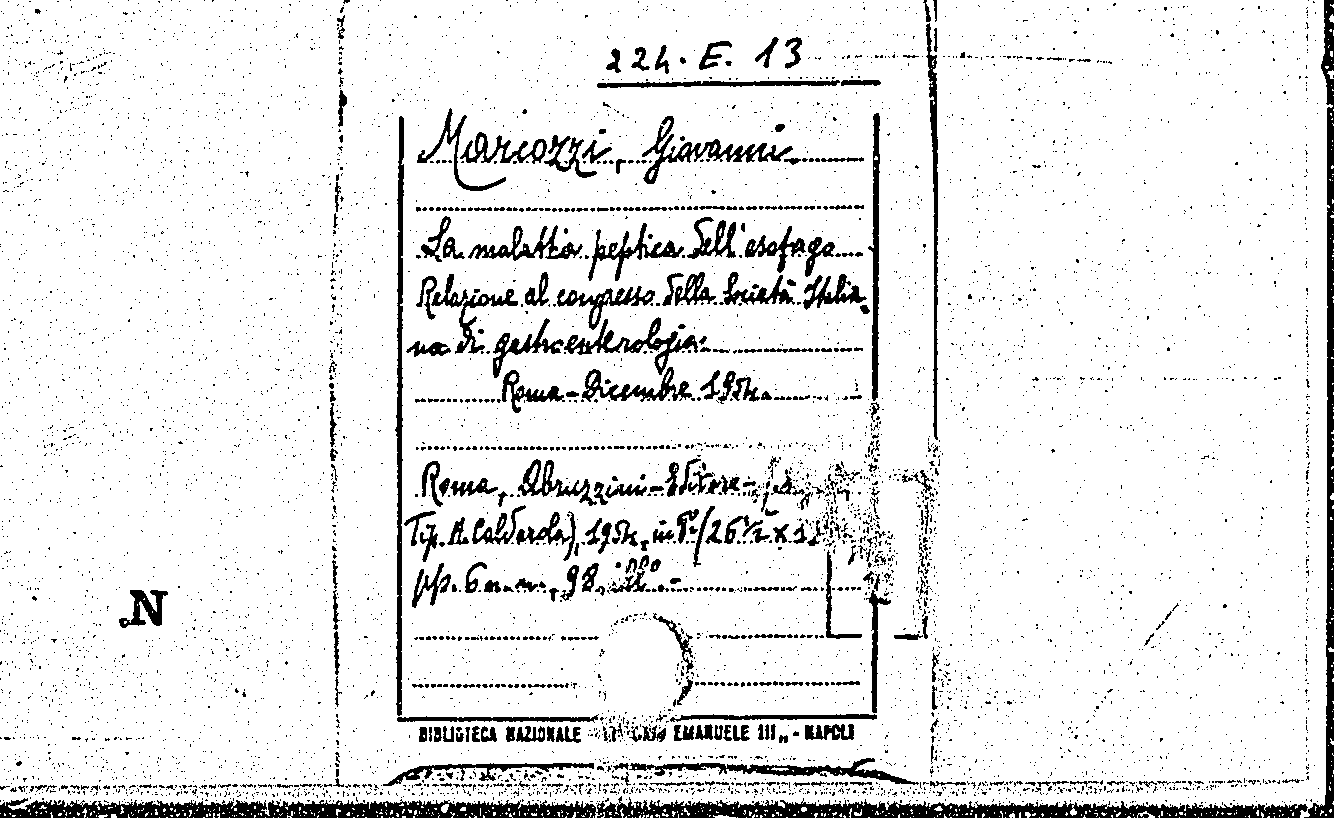 224. E. 13
Marcozzi, Giovanni.
La malattia peptica dell'esofago
Relazione al congresso della Società Italia
na di gastroenterologia.
Roma - Dicembre 1954.
Roma, Abruzzini - Editore -
Tip. A. Calderola), 1954, in 8º (26½ x 1
pp. 6 n.n., 98. ill. -
N
BIBLIOTECA NAZIONALE EMANUELE III„ - NAPOLI